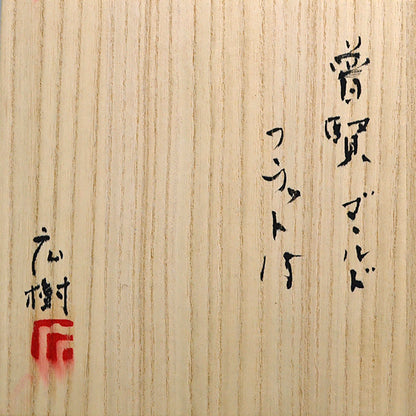 賢 ゴールド
フラット
広樹